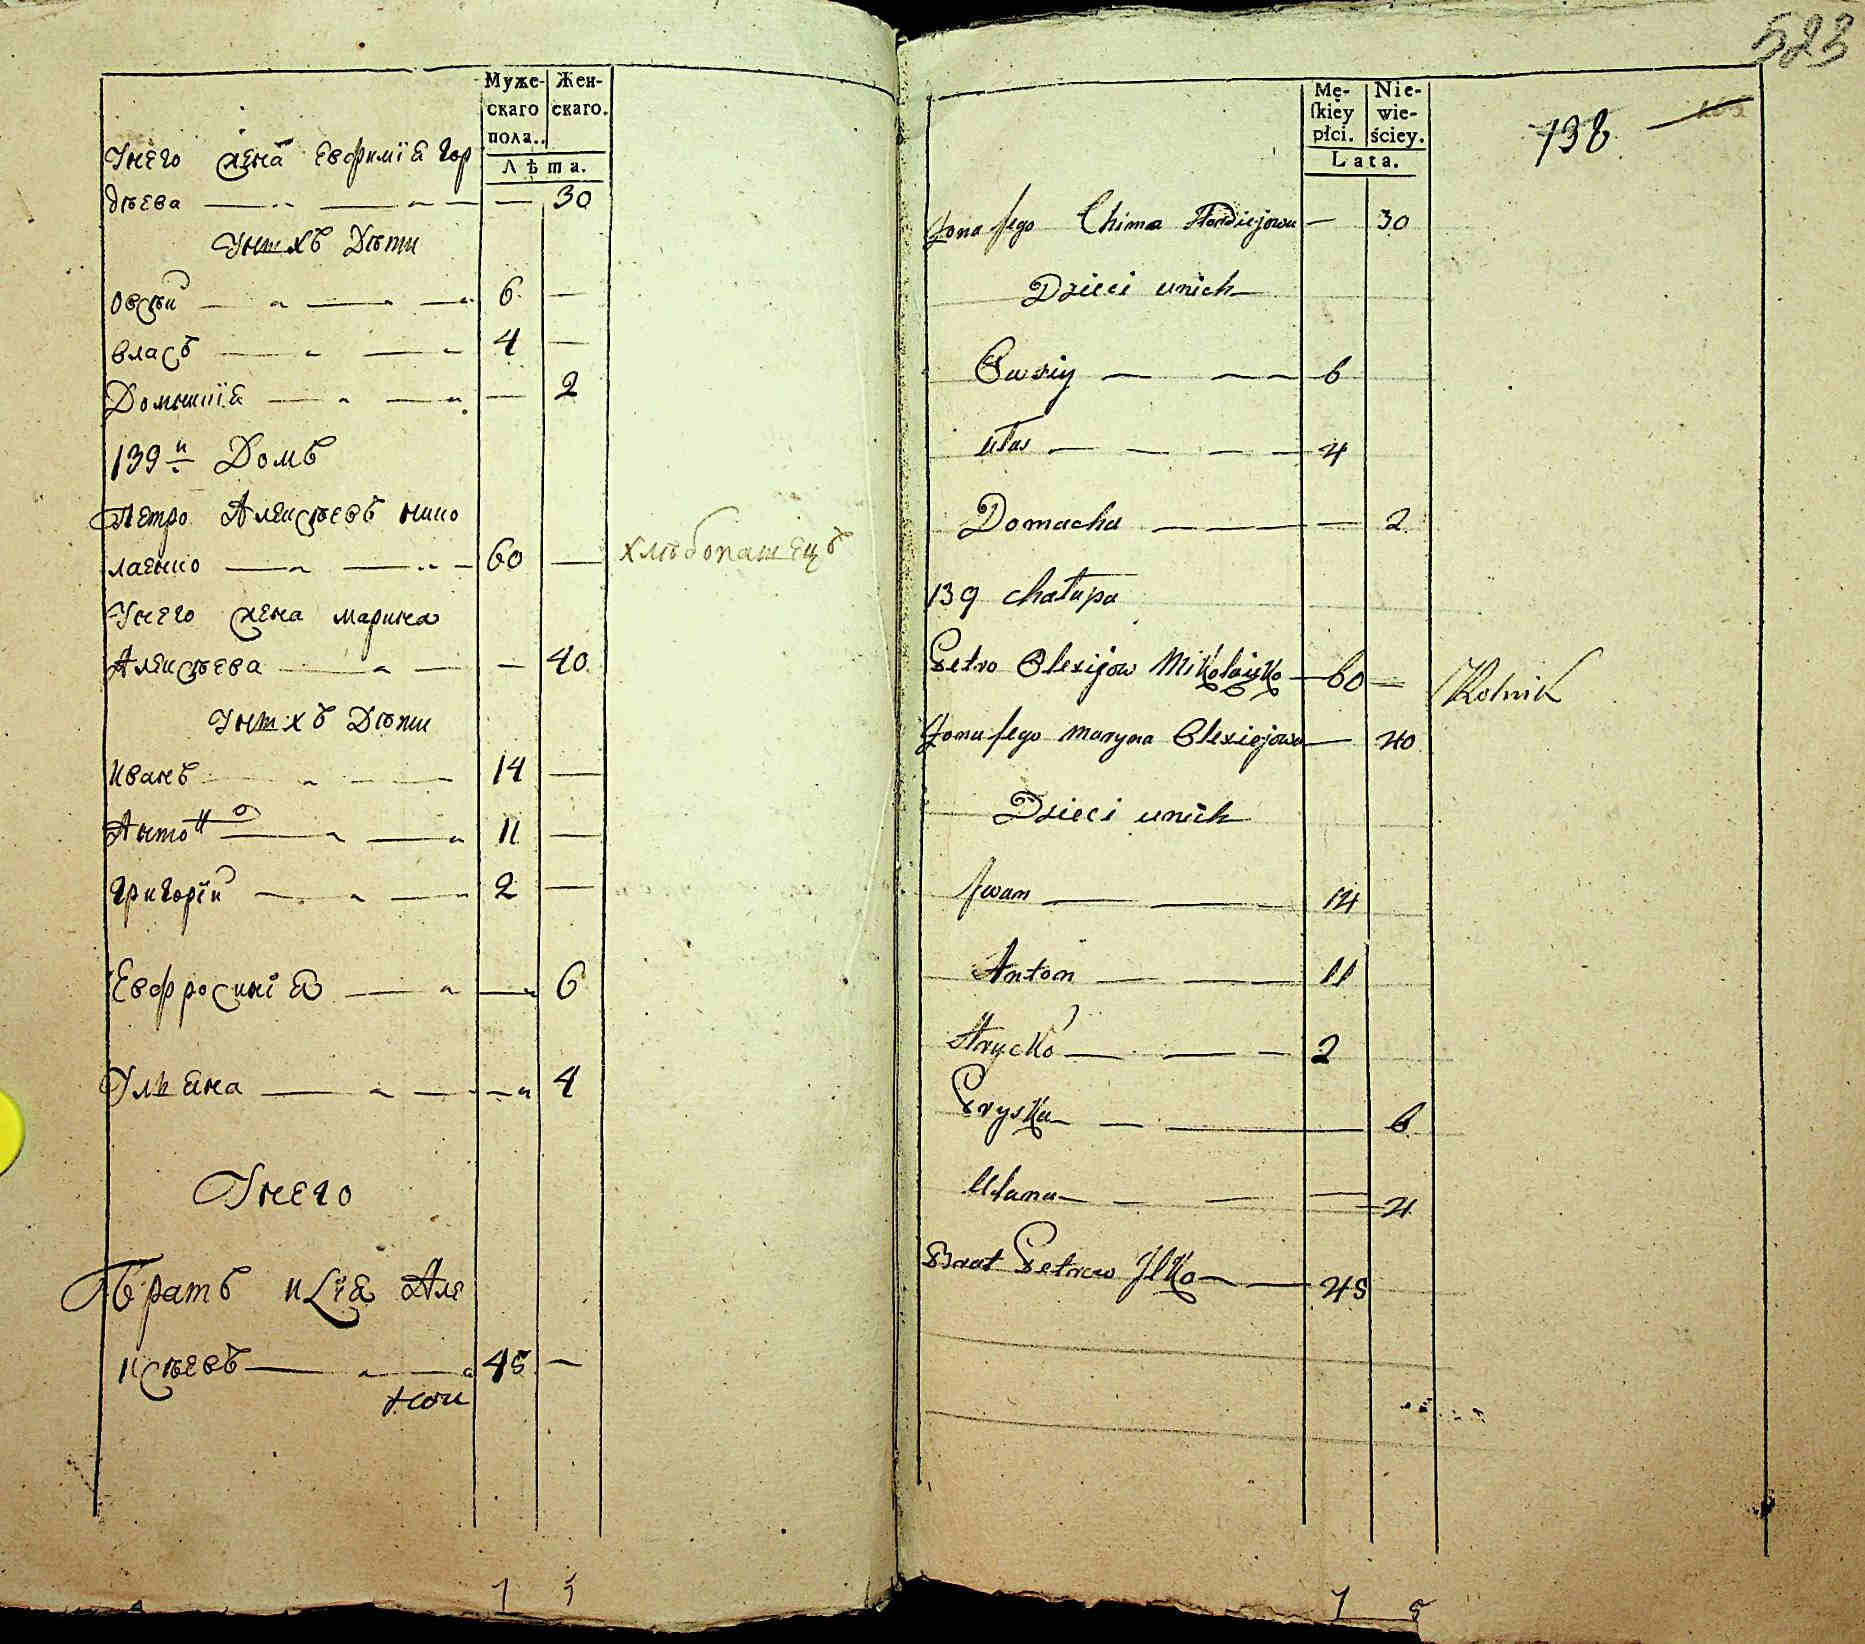 Муже-
скаго
пола..
Жен-
скаго.
Лѣта.
Унего жена Евфимїа Гор
дѣева — — — 30
Унихъ Дѣти
Овсѣй — — — 6 —
власъ — — 4 —
Домникїа — — — 2
139й Домъ
Петро Алексѣевъ нико
лаенко — — 60 — хлѣбопашецъ
Унего жена марина
Алексѣева — — — 40
Унихъ Дѣти
Иванъ — — 14 —
Антонъ — — 11 —
Григорїй — — 2 —
Евфросинїа — — 6
Улияна — — — 4
Унего
Братъ илїа Але
ксѣевъ — — 45 —
7 5
523
Mę-
skiey
płci.
Nie-
wie-
ściey.
Lata.
138
Żona Jego Chima Hordiejowa — 30
Dzieci unich
Owsiy — — — 6
Ułas — — — — 4
Domacha — — — — 2
139 chałupa
Petro Olexijow Mikołajko — 60 — Rolnik
Żona Jego Maryna Olexiejowa — 40
Dzieci unich
Jwan — — 14
Anton — — 11
Hrycko — — — 2
Pryska — — 6
Ulana — — — 4
Brat Petrow Jlko — — 45
7 5